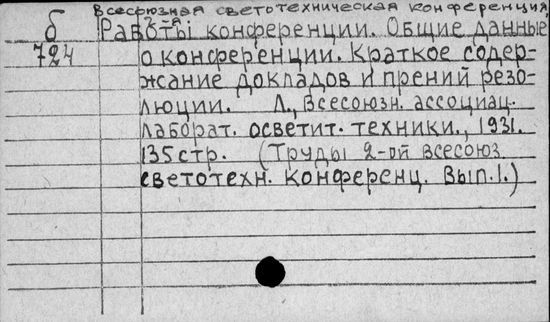 Всесоюзная светотехническая конференция
2-я
б Работы конференции. Общие данные
724 о конференции. Краткое содер-
жание докладов и прений резо-
люции. Л., Всесоюзн. ассоциац.
лаборат. осветит. техники., 1931.
135 стр. (Труды 2-ой всесоюз.
светотехн. конференц. Вып. 1.)